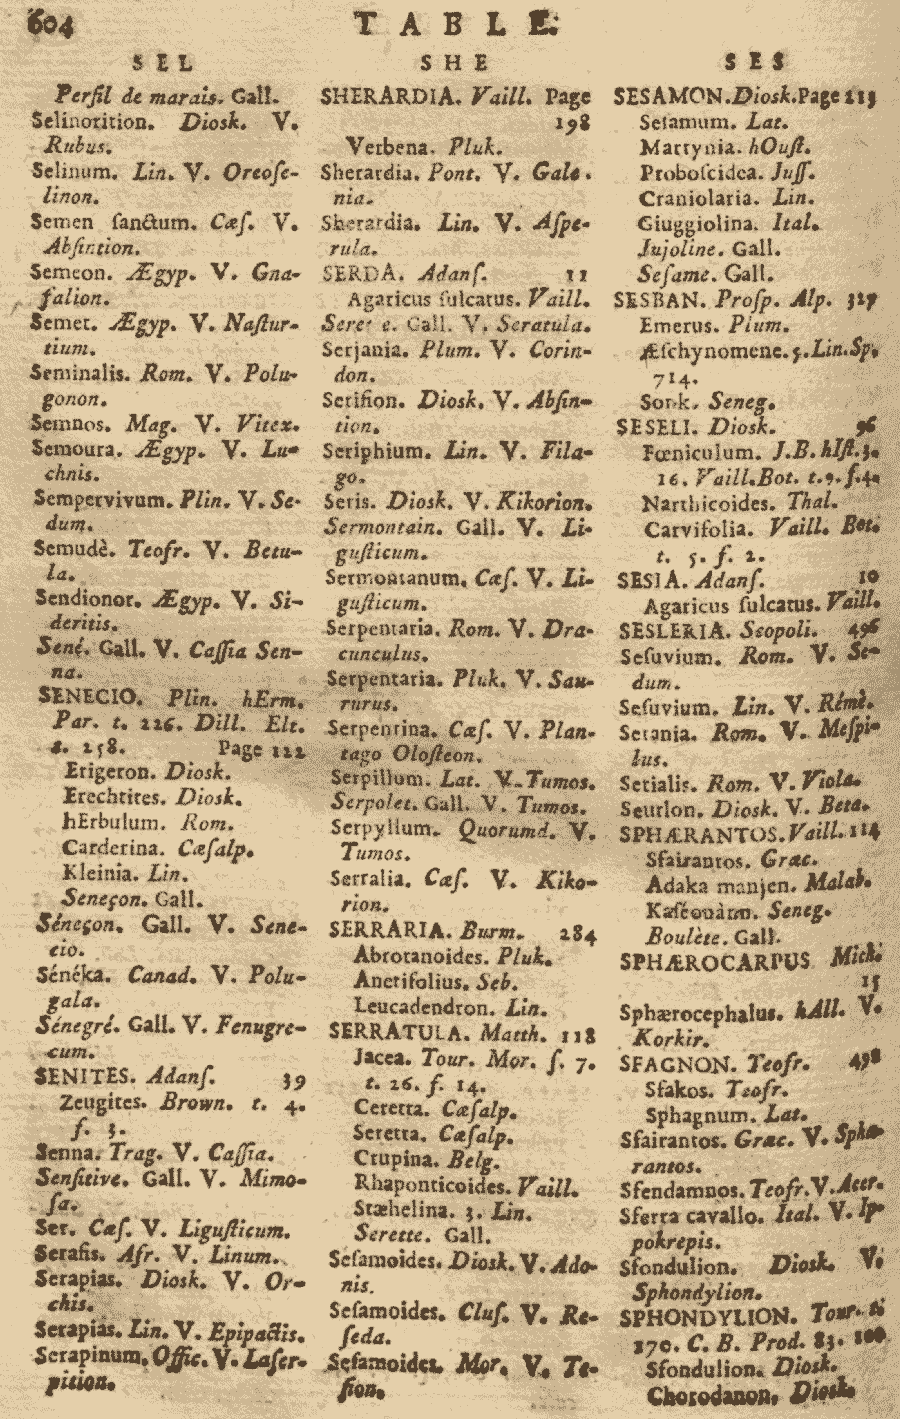 604
TABLE.
SEL
Persil de marais. Gall.
Selinorition. Diosk. V.
Rubus.
Selinum. Lin. V. Oreose-
linon.
Semen ſanctum. Cæſ. V.
Abſintion.
Semeon. Ægyp. V. Gna-
falion.
Semet. Ægyp. V. Naſtur-
tium.
Seminalis. Rom. V. Polu-
gonon.
Semnos. Mag. V. Vitex.
Semoura. Ægyp. V. Lu-
chnis.
Sempervivum. Plin. V. Se-
dum.
Semudè. Teofr. V. Betu-
la.
Sendionor. Ægyp. V. Si-
deritis.
Sené. Gall. V. Caſſia Sen-
na.
SENECIO. Plin. hErm.
Par. t. 226. Dill. Elt.
t. 258. Page 122
Erigeron. Diosk.
Erechtites. Diosk.
hErbulum. Rom.
Carderina. Cæſalp.
Kleinia. Lin.
Seneçon. Gall.
Séneçon. Gall. V. Sene-
cio.
Sénéka. Canad. V. Polu-
gala.
Sénegré. Gall. V. Fenugre-
cum.
SENITES. Adanſ. 39
Zeugites. Brown. t. 4.
f. 3.
Senna. Trag. V. Caſſia.
Senſitive. Gall. V. Mimo-
ſa.
Ser. Cæſ. V. Liguſticum.
Serafis. Afr. V. Linum.
Serapias. Diosk. V. Or-
chis.
Serapias. Lin. V. Epipactis.
Serapinum. Offic. V. Laſer-
pition.
SHE
SHERARDIA. Vaill. Page
198
Verbena. Pluk.
Sherardia. Pont. V. Gale-
nia.
Sherardia. Lin. V. Aſpe-
rula.
SERDA. Adanſ. 11
Agaricus ſulcatus. Vaill.
Gall. V. Seratula.
Serjania. Plum. V. Corin-
don.
Serifion. Diosk. V. Abſin-
tion.
Seriphium. Lin. V. Fila-
go.
Seris. Diosk. V. Kikorion.
Sermontain. Gall. V. Li-
guſticum.
Sermontanum. Cæſ. V. Li-
guſticum.
Serpentaria. Rom. V. Dra-
cunculus.
Serpentaria. Pluk. V. Sau-
rurus.
Serpentina. Cæſ. V. Plan-
tago Oloſteon.
Serpillum. Lat. V. Tumos.
Serpolet. Gall. V. Tumos.
Serpyllum. Quorumd. V.
Tumos.
Serralia. Cæſ. V. Kiko-
rion.
SERRARIA. Burm. 284
Abrotanoides. Pluk.
Anetifolius. Seb.
Leucadendron. Lin.
SERRATULA. Matth. 118
Jacea. Tour. Mor. ſ. 7.
t. 26. f. 14.
Ceretta. Cæſalp.
Seretta. Cæſalp.
Crupina. Belg.
Rhaponticoides. Vaill.
Stæhelina. 3. Lin.
Serette. Gall.
Seſamoides. Diosk. V. Ado-
nis.
Seſamoides. Cluſ. V. Re-
ſeda.
Seſamoides. Mor. V. Te-
ſion.
SES
SESAMON. Diosk. Page 213
Seſamum. Lat.
Martynia. hOuſt.
Proboſcidea. Juſſ.
Craniolaria. Lin.
Giuggiolina. Ital.
Jujoline. Gall.
Seſame. Gall.
SESBAN. Proſp. Alp. 327
Emerus. Plum.
Æſchynomene. 5. Lin. Sp.
714.
Seneg.
SESELI. Diosk. 96
Fœniculum. J. B. hIſt. 3.
16. Vaill. Bot. t. 9. f. 4.
Narthicoides. Thal.
Carvifolia. Vaill. Bot.
t. 5. f. 2.
SESIA. Adanſ. 10
Agaricus ſulcatus. Vaill.
SESLERIA. Scopoli. 496
Seſuvium. Rom. V. Se-
dum.
Seſuvium. Lin. V. Rémè.
Setania. Rom. V. Meſpi-
lus.
Setialis. Rom. V. Viola.
Seutlon. Diosk. V. Beta.
SPHÆRANTOS. Vaill. 114
Sfairantos. Græc.
Adaka manjen. Malab.
Seneg.
Boulète. Gall.
SPHÆROCARPUS. Mich.
15
Sphærocephalus. hAll. V.
Korkir.
SFAGNON. Teofr. 498
Sfakos. Teofr.
Sphagnum. Lat.
Sfairantos. Græc. V. Sphæ-
rantos.
Sfendamnos. Teofr. V. Acer.
Sferra cavallo. Ital. V. Ip-
pokrepis.
Sfondulion. Diosk. V.
Sphondylion.
SPHONDYLION. Tour. t.
170. C. B. Prod. 83. 100
Sfondulion. Diosk.
Chorodanon. Diosk.